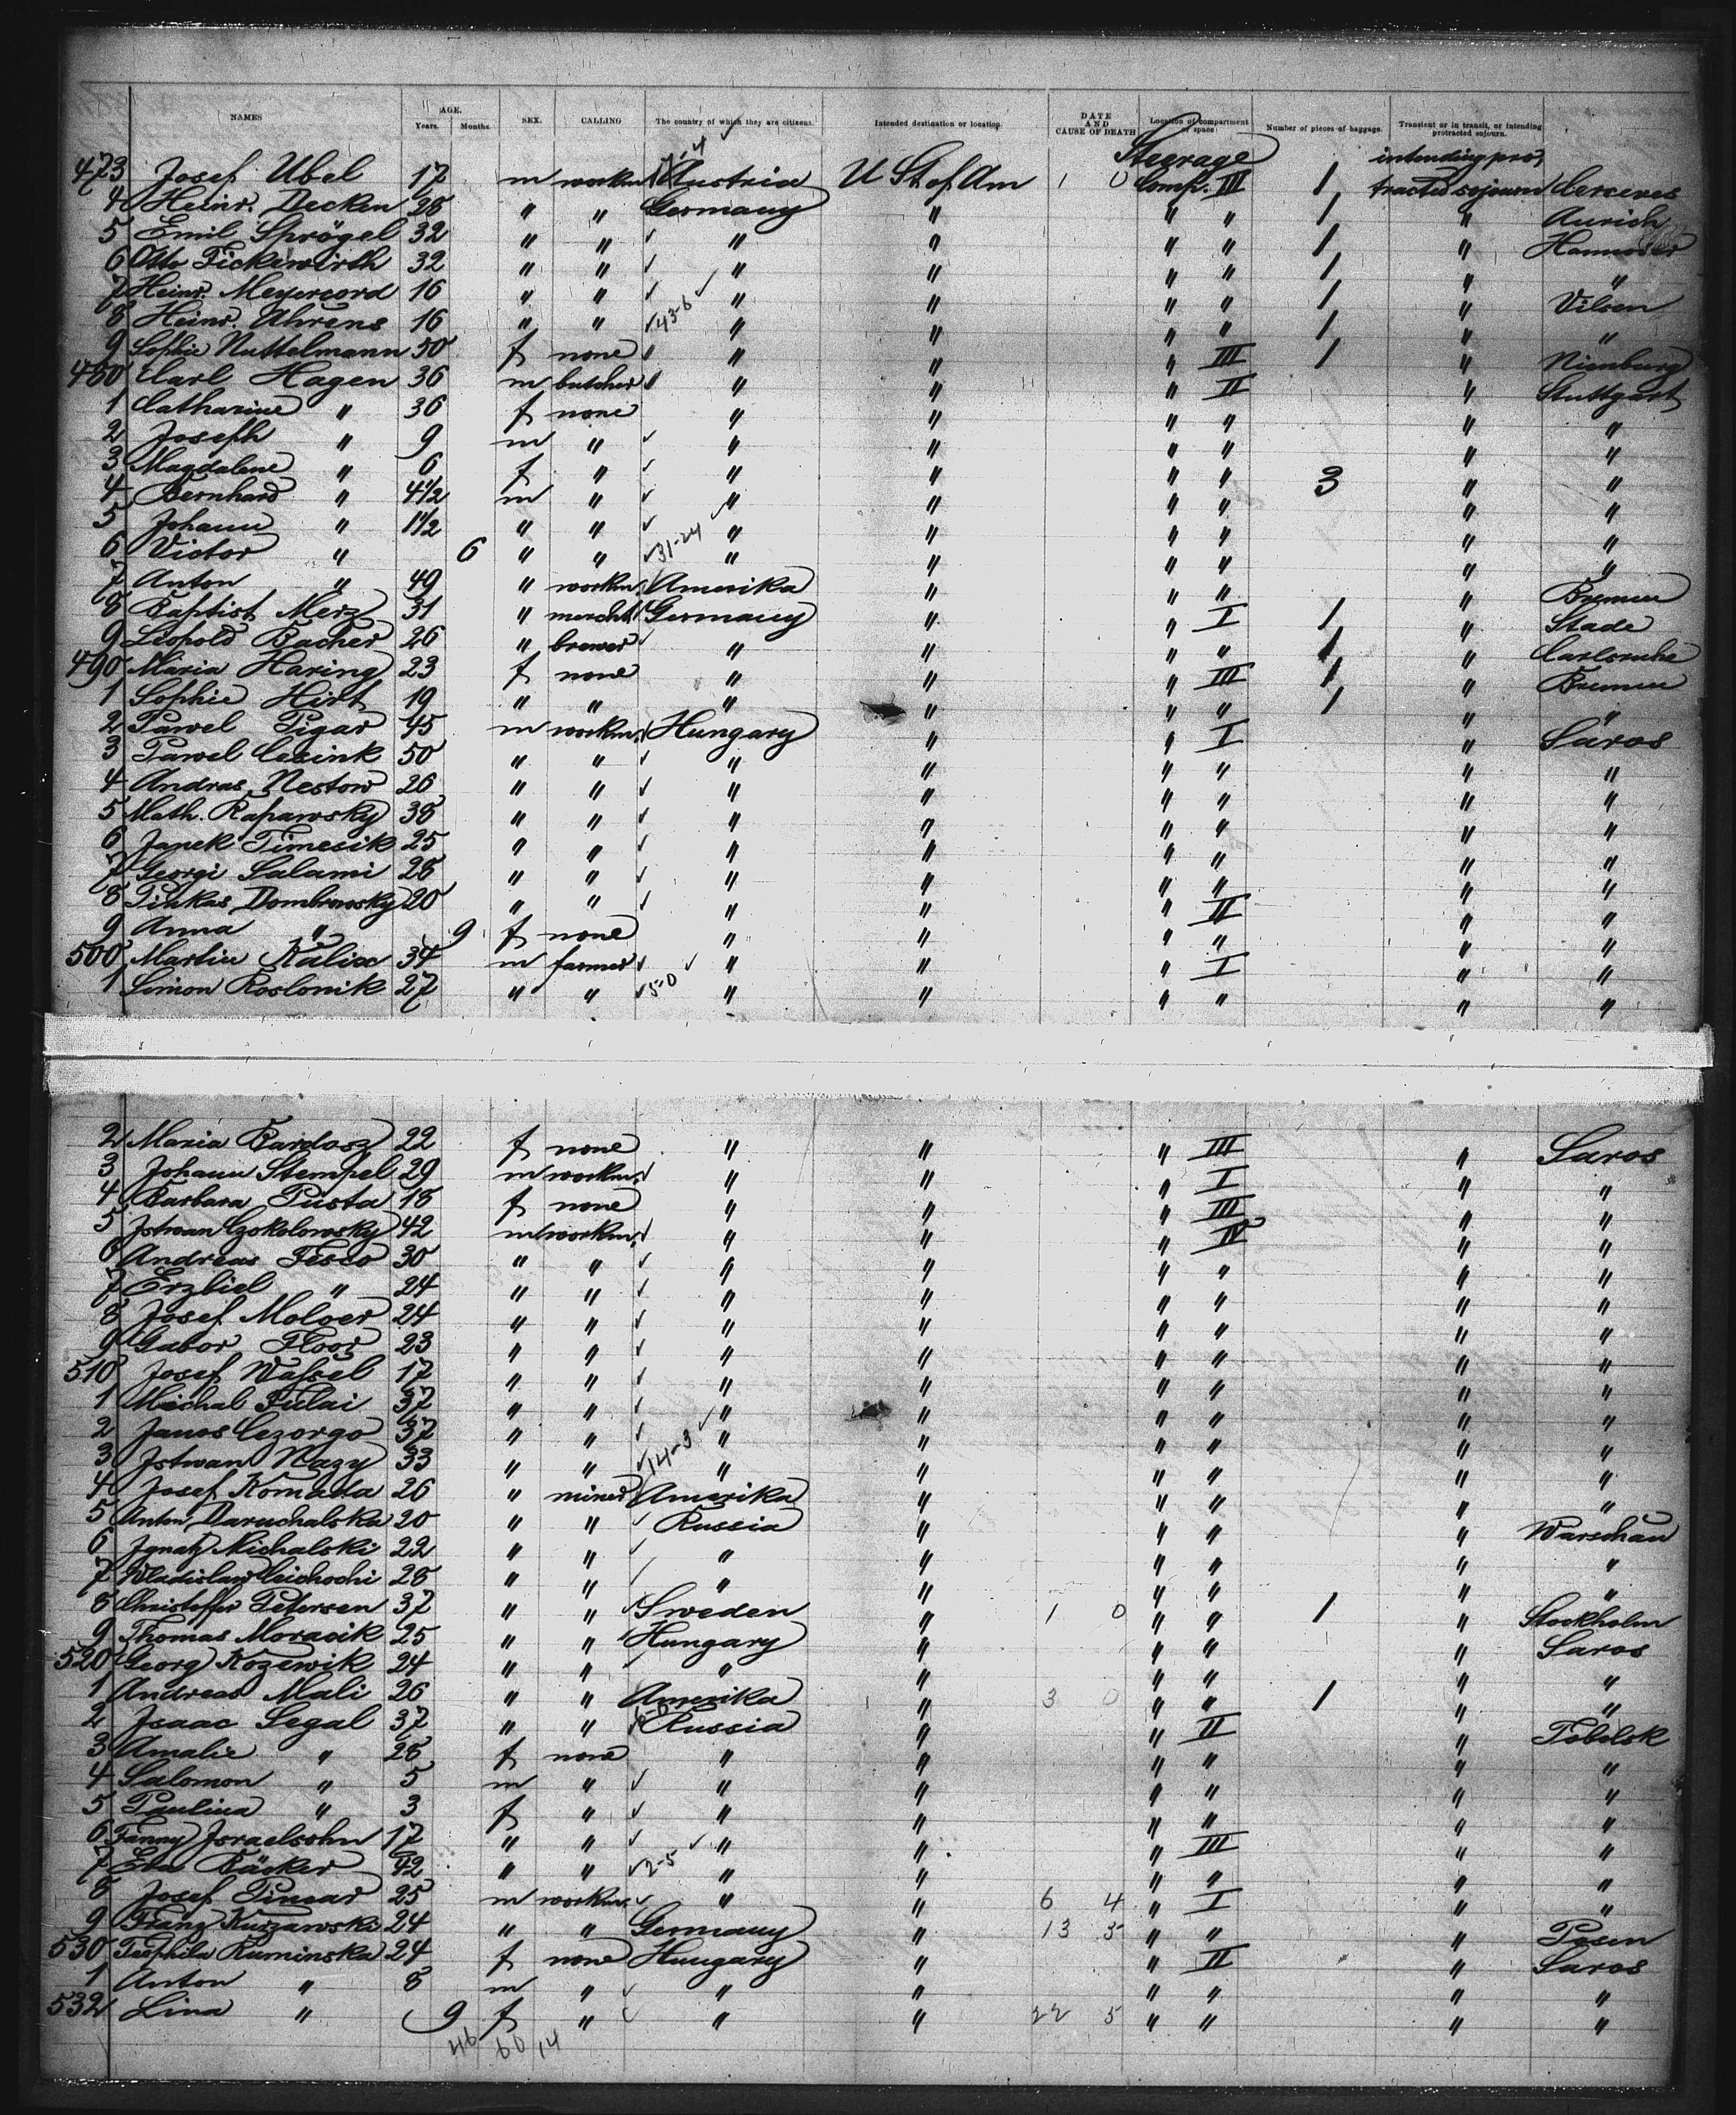 NAMES AGE. Years. Months. SEX. CALLING The country of which they are citizens. Intended destination or location. DATE AND CAUSE OF DEATH Location of compartment or space Number of pieces of baggage. Transient or in transit, or intending protracted sojourn.
Steerage intending pro,
473 Josef Ubel 17 m workm. Austria U St of Am 1 0 Comp. III 1 tracted sojourn
4 Heinr. Decken 28 " " Germany " " " 1 " Aurich
5 Emil Sprögel 32 " " " " " " 1 " Hannover
6 Otto Fickewirth 32 " " " " " " 1 " "
7 Heinr. Meyercord 16 " " " " " " 1 " Vilsen
8 Heinr. Ahrens 16 " " 43-6 " " " " 1 " "
9 Sophie Nuttelmann 50 f none " " " III 1 " Nienburg
480 Carl Hagen 36 m butcher " " " II " Stuttgart
1 Catharine " 36 f none " " " " " "
2 Joseph " 9 m " " " " " " "
3 Magdalene " 6 f " " " " " 3 " "
4 Bernhard " 4 1/2 m " " " " " " "
5 Johann " 1 1/2 " " " " " " " "
6 Victor " 6 " " 31-24 " " " " " "
7 Anton " 49 " workm. Amerika " " " " Bremen
8 Baptist Merz 31 " mercht. Germany " " I 1 " Stade
9 Leopold Bacher 26 " brewer " " " " 1 " Carlsruhe
490 Maria Haring 23 f none " " " III 1 " Bremen
1 Sophie Hirt 19 " " " " " " 1 " "
2 Pawel Pigar 45 m workm. Hungary " " I " Saros
3 Pawel Cesink 50 " " " " " " " "
4 Andras Nestow 26 " " " " " " " "
5 Math. Raparosky 38 " " " " " " " "
6 Janek Timesik 25 " " " " " " " "
7 Georgi Salami 28 " " " " " " " "
8 Pinkas Dombrowsky 20 " " " " " II " "
9 Anna " 9 f none " " " " " "
500 Martin Kalix 34 m farmer " " " I " "
1 Simon Roslonik 27 " " 5-0 " " " " " "
2 Maria Bardosz 22 f none " " " III " Saros
3 Johann Stempel 29 m workm. " " " I " "
4 Barbara Pusta 18 f none " " " III " "
5 Istwan Czokolowsky 42 m workm. " " " IV " "
6 Andreas Fesco 30 " " " " " " " "
7 Erzbiel " 24 " " " " " " " "
8 Josef Moloer 24 " " " " " " " "
9 Gabor Floor 23 " " " " " " " "
510 Josef Wassel 17 " " " " " " " "
1 Michal Fulai 37 " " " " " " " "
2 Janos Czorgo 37 " " " " " " " "
3 Istwan Nazy 33 " " 14-3 " " " " " "
4 Josef Komada 26 " miner Amerika " " " " "
5 Anton Daruchalska 20 " " Russia " " " " Warschau
6 Ignatz Michalski 22 " " " " " " " "
7 Wladislaw Cichochi 28 " " " " " " " "
8 Christoffer Petersen 37 " " Sweden " 1 0 " " 1 " Stockholm
9 Thomas Moracik 25 " " Hungary " " " " Saros
520 Georg Kozewik 24 " " " " " " " "
1 Andreas Mali 26 " " Amerika " 3 0 " " 1 " "
2 Isaac Segal 37 " " Russia " " II " Tobolsk
3 Amalie " 28 f none " " " " " "
4 Salomon " 5 m " " " " " " "
5 Paulina " 3 f " " " " " " "
6 Fanny Israelsohn 17 " " " " " III " "
7 Eva Bäcker 42 " " 2-5 " " " " " "
8 Josef Pinsar 25 m workm. " " 6 4 " I " "
9 Franz Kurzawski 24 " " Germany " 13 5 " " " Posen
530 Teophila Ruminska 24 f none Hungary " " II " Saros
1 Anton " 8 m " " " " " " "
532 Lina " 9 f " " " 22 5 " " " "
46 60 14